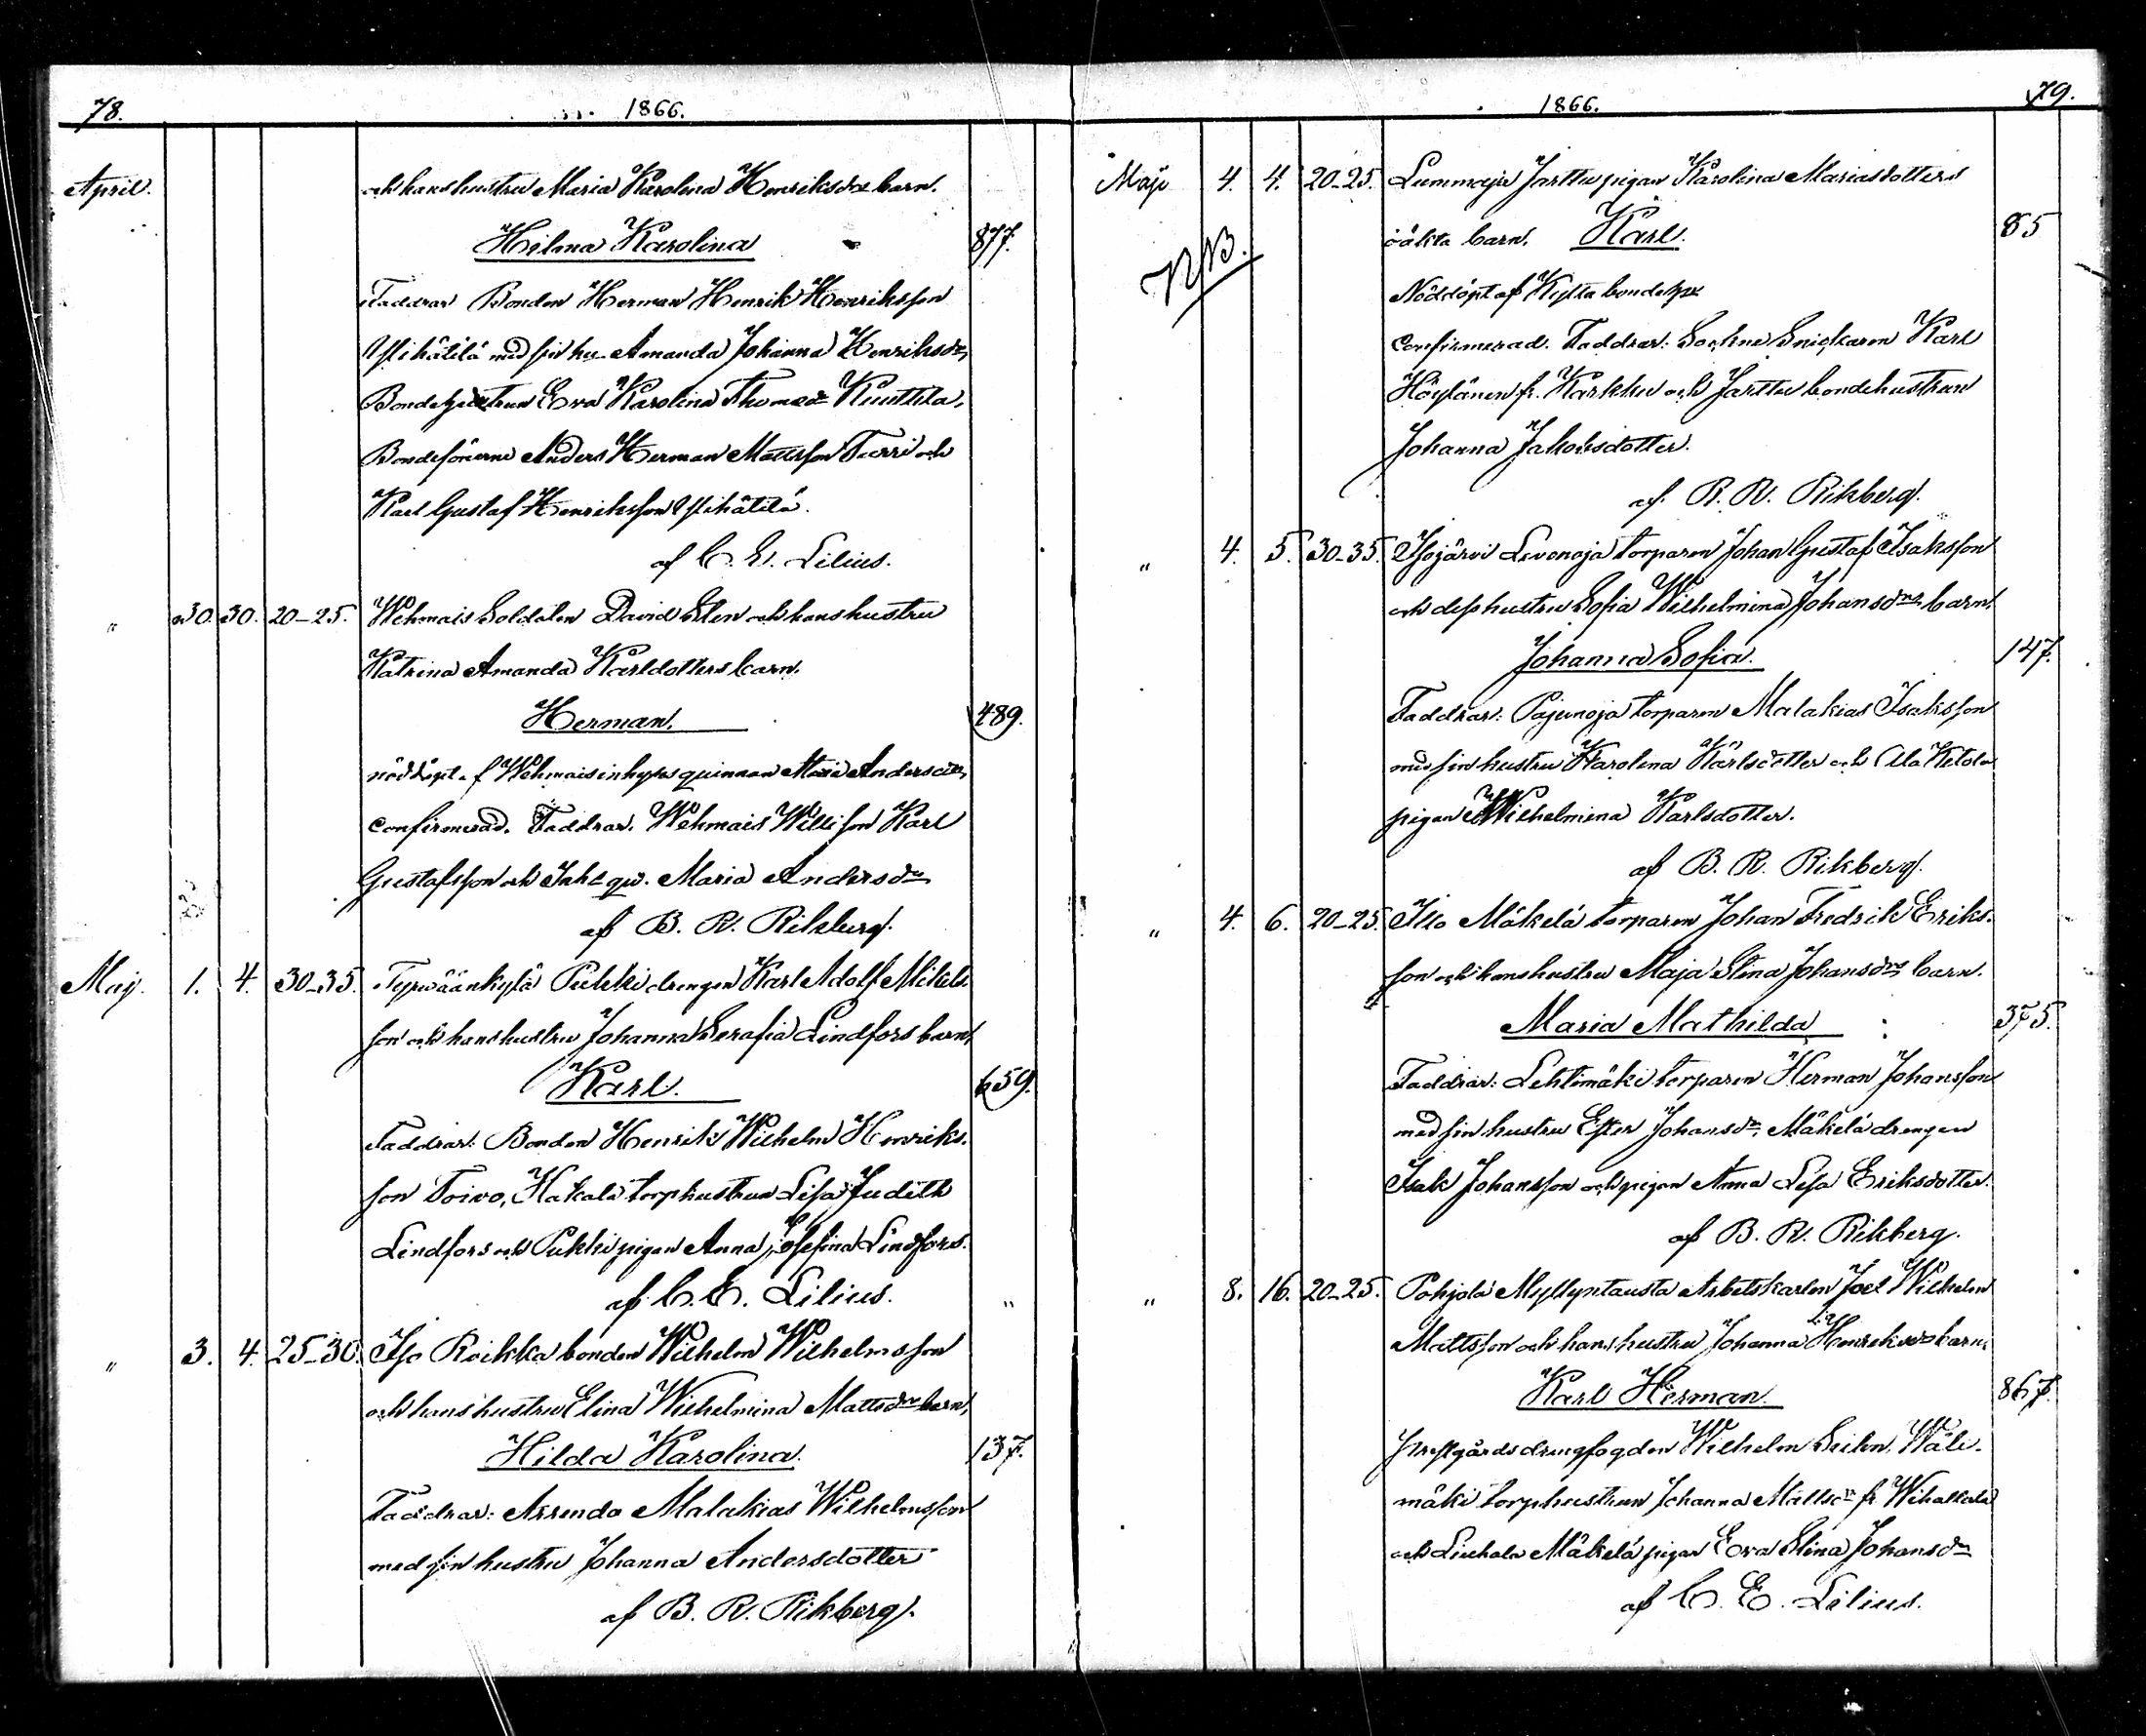 78.
1866.
April.
och hans hustru Maria Karolina Henriksdrs barn.
Hilma Karolina
877.
Faddrar Bonden Herman Henrik Henriksson
Ylihätilä med sin hu. Amanda Johanna Henriksdr,
Bondehustrun Eva Karolina Thomasdr Kuuttila,
Bondesönerne Anders Herman Mattsson Turri och
Karl Gustaf Henriksson Ylihätilä.
af C. E. Lilius.
" 30. 30. 20-25. Wehmais Soldaten David Sten och hans hustru
Katrina Amanda Karldotters barn.
Herman.
489.
nöddöpt af Wehmais inhyses quinnan Maria Andersdr,
confirmerad. Faddrar. Wehmais Willi son Karl
Gustafsson och Inhs qv. Maria Andersdr
af B. R. Rikberg.
Maj. 1. 4. 30-35. Tyrwäänkylä Pukki drengen Karl Adolf Mikels-
son och hans hustru Johanna Serafia Lindfors barn,
Karl.
659.
Faddrar: Bonden Henrik Wilhelm Henriks-
son Toivo, Hakala torphustrun Lisa Judith
Lindfors och Pukki pigan Anna Josefina Lindfors.
af C. E. Lilius.
" 3. 4. 25-30. Iso Roikka bonden Wilhelm Wilhelmsson
och hans hustru Elina Wilhelmina Mattsdrs barn,
Hilda Karolina.
137.
Faddrar: Arrendo Malakias Wilhelmsson
med sin hustru Johanna Andersdotter
af B. R. Rikberg.
1866.
79.
Maji 4. 4. 20-25. Lummaja Jarttu pigan Karolina Mariasdotters
oäkta barn. Karl.
85
NB.
Nöddöpt af Kylta bondehu
confirmerad. Faddrar: Sockne Snickaren Karl
Höylänen fr. Karkku och Jarttu bondehustrun
Johanna Jakobsdotter.
af B. R. Rikberg.
" 4. 5. 30-35. Isojärvi Levonoja torparen Johan Gustaf Isaksson
och dess hustru Sofia Wilhelmina Johansdrs barn.
Johanna Sofia.
147.
Faddrar: Pajunoja torparen Malakias Isaksson
med sin hustru Karolina Karlsdotter och Ala Ketola
pigan Wilhelmina Karlsdotter.
af B. R. Rikberg.
" 4. 6. 20-25. Illo Mäkelä torparen Johan Fredrik Eriks-
son och hans hustru Maja Stina Johansdrs barn.
Maria Mathilda
375.
Faddrar: Lehtimäki torparen Herman Johansson
med sin hustru Ester Johansdr, Mäkelä drengen
Isak Johansson och pigan Anna Lisa Eriksdotter.
af B. R. Rikberg.
" " 8. 16. 20-25. Pohjola Myllyntausta Arbetskarlen Joel Wilhelm
Mattsson och hans hustru Johanna Henriksdrs barn.
Karl Herman.
867.
Prestgårds drengfogden Wilhelm Seilen, Wäli-
mäki torphustrun Johanna Mattsdr fr. Wihattala
och Liuhala Mäkelä pigan Eva Stina Johansdr
af C. E. Lilius.